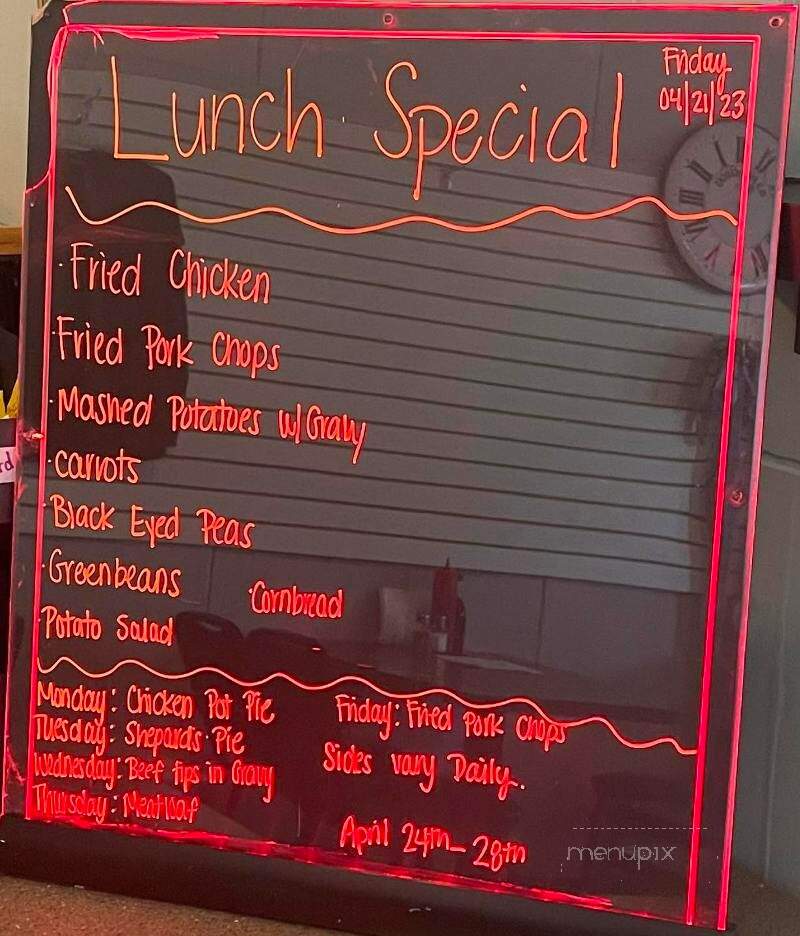 Lunch Special
Friday
04/21/23
·Fried Chicken
·Fried Pork Chops
·Mashed Potatoes w/Gravy
·carrots
·Black Eyed Peas
·Greenbeans
·Cornbread
·Potato Salad
Monday: Chicken Pot Pie
Tuesday: Shepard's Pie
Wednesday: Beef tips in Gravy
Thursday: Meatloaf
Friday: Fried Pork Chops
Sides vary Daily.
April 24th-28th
menupix